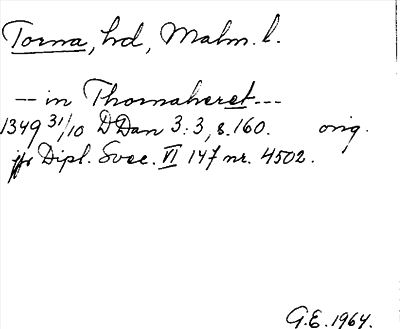 Torna, hd, Malm. l.
-- in Thornaheret ---
1349 31/10 DDan 3:3, s. 160. orig.
jfr Dipl. Svec. VI 147 nr. 4502.
G.E. 1964.